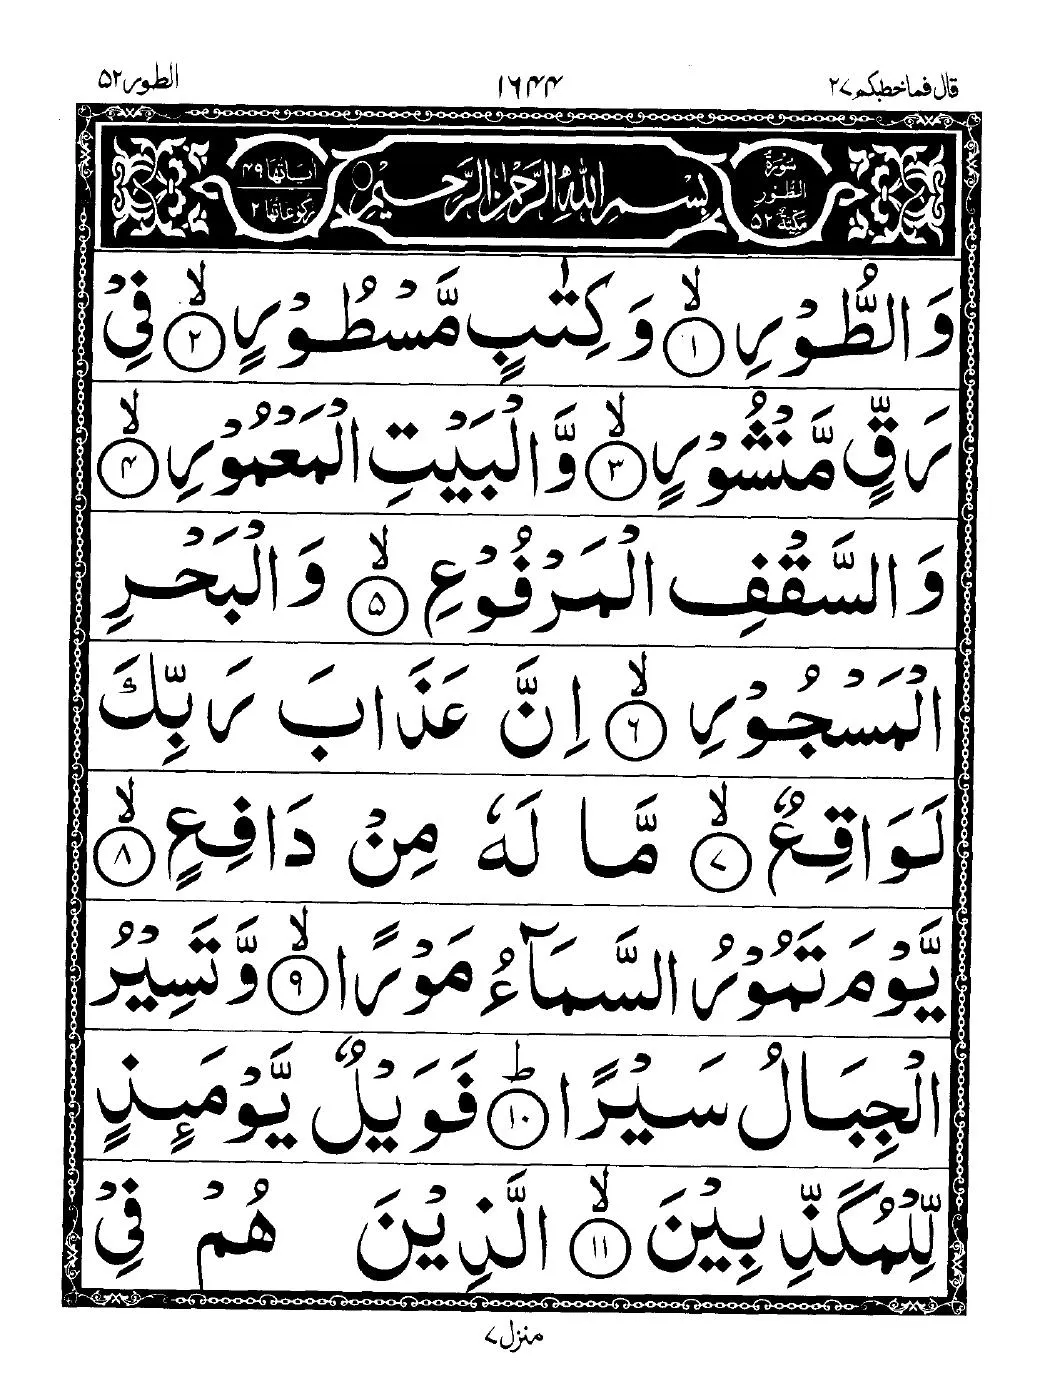 قال فما خطبکم ۲۷ ۱۶۴۴ الطور ۵۲
سُوْرَةُ الطُّوْرِ مَكِّيَّةٌ ۵۲ بِسْمِ اللّٰهِ الرَّحْمٰنِ الرَّحِيْمِ اٰيَاتُهَا ۴۹ رُكُوْعَاتُهَا ۲
وَالطُّوْرِ ۙ‏﴿۱﴾ وَ كِتٰبٍ مَّسْطُوْرٍ ۙ‏﴿۲﴾ فِیْ
رَقٍّ مَّنْشُوْرٍ ۙ‏﴿۳﴾ وَّالْبَيْتِ الْمَعْمُوْرِ ۙ‏﴿۴﴾
وَالسَّقْفِ الْمَرْفُوْعِ ۙ‏﴿۵﴾ وَالْبَحْرِ
الْمَسْجُوْرِ ۙ‏﴿۶﴾ اِنَّ عَذَابَ رَبِّكَ
لَوَاقِعٌ ۙ‏﴿۷﴾ مَّا لَهٗ مِنْ دَافِعٍ ۙ‏﴿۸﴾
يَّوْمَ تَمُوْرُ السَّمَآءُ مَوْرًا ۙ‏﴿۹﴾ وَّتَسِيْرُ
الْجِبَالُ سَيْرًا ؕ‏﴿۱۰﴾ فَوَيْلٌ يَّوْمَئِذٍ
لِّلْمُكَذِّبِيْنَ ۙ‏﴿۱۱﴾ الَّذِيْنَ هُمْ فِیْ
منزل ۷